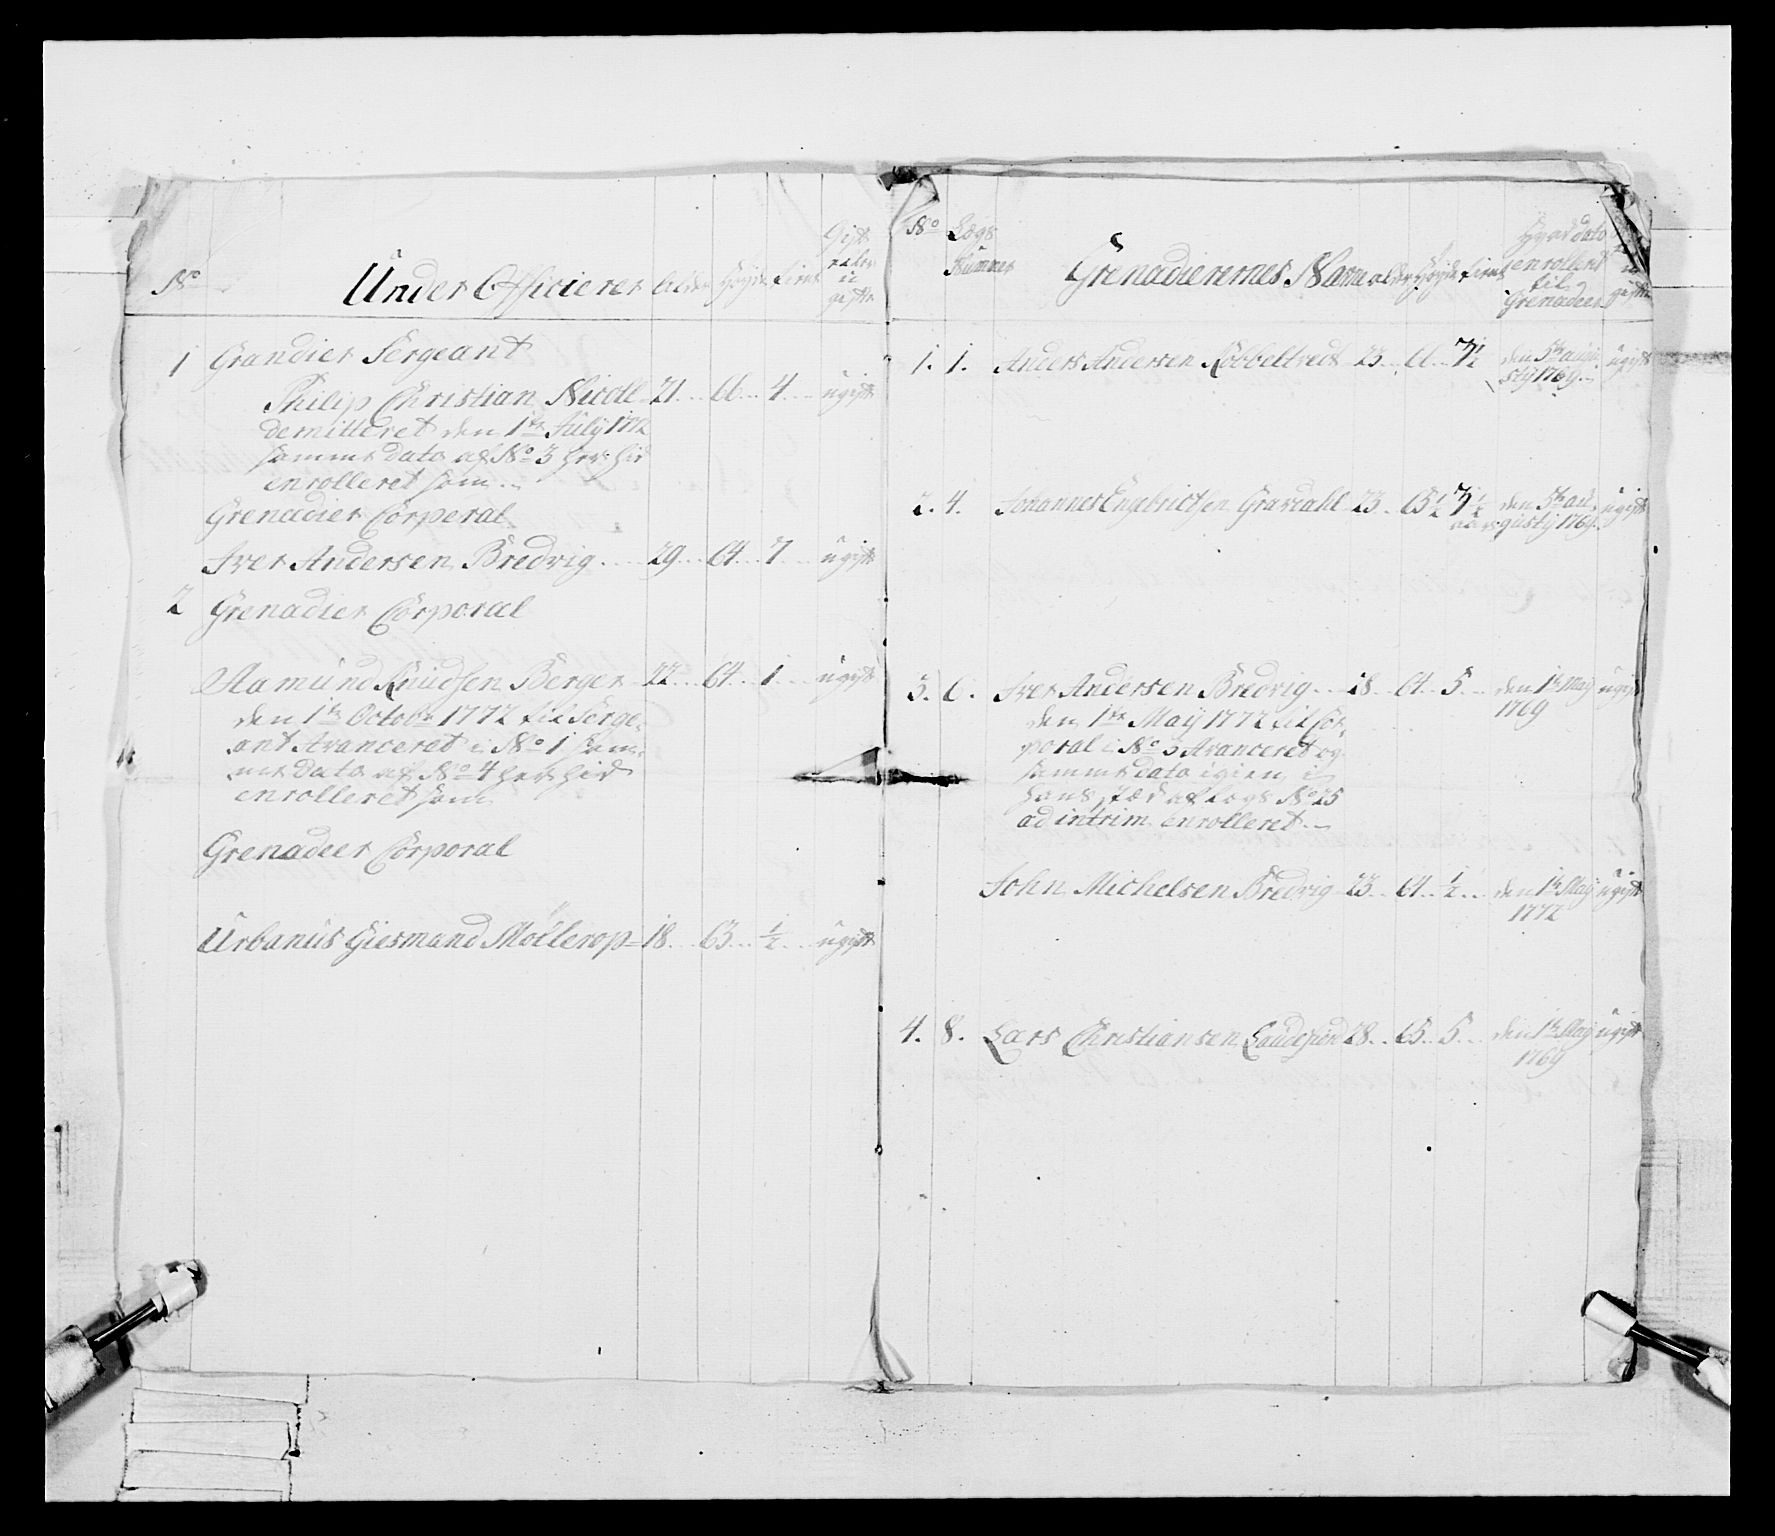 No
Under Officierer
Alder
Høyde
tient
Gift
eller
u
gifte
1
Grandier Sergeant
Philip Christian Nicoll 21 66 4 ugift
demitteret den 1te July 1772
samme dato af No 3 her hid
enrolleret som
Grenadier Corperal
Iver Andersen Bredvig 29 64 7 ugift
2 Grenadier Corporal
Aamund Knudsen Berger 22 64 1 ugift
den 1te Octobr 1772 til Serge-
ant Avanceret i No 1 sam-
me Dato af No 4 her hid
enrolleret som
Grenadeer Corporal
Urbanus Giesmand Möllerop 18 63 ½ ugift
No
Lægs
Nummer
Grenadierernes Navne
alder
Høyde
tient
Hvad dato
enrollert
til
Grenadeer
gifte
1. 1. Anders Andersen Röbbeltredt 23 66 3½ den 5te augu-
stij 1769
ugift
2. 4. Johannes Engebrictsen Gravdahl 23 65½ 3½ den 5te au-
aar gustij 1769
ugift
3. 6. Iver Andersen Bredvig 28 64 5 den 1te May
1769
ugift
den 1te May 1772 til Cor-
poral i No 3 Avanceret og
samme dato igien i
hans stæd af lægs No 25
ad intrim enrolleret
John Michelsen Bredvig 23 64 ½ den 1te May
1772
ugift
4. 8. Lars Christiansen 28 65 5 den 1te May
1769
ugift